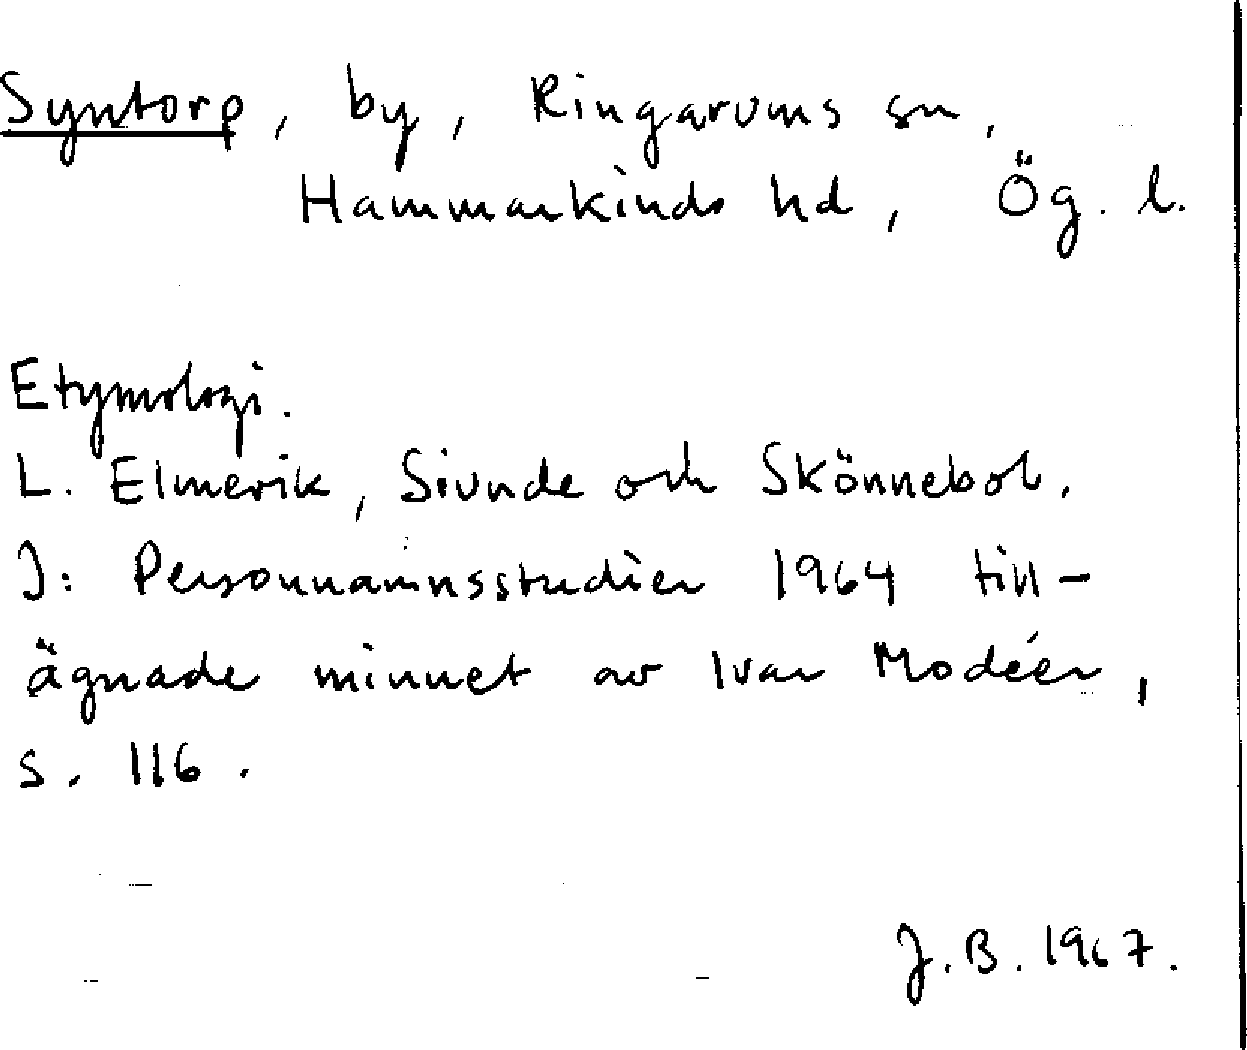 Syntorp, by, Ringarums sn,
Hammarkinds hd, Ög. l.
Etymologi.
L. Elmevik, Sivnde och Skönnebol.
I: Personnamnsstudier 1964 till-
ägnade minnet av Ivar Modéer,
s. 116.
J.B. 1967.